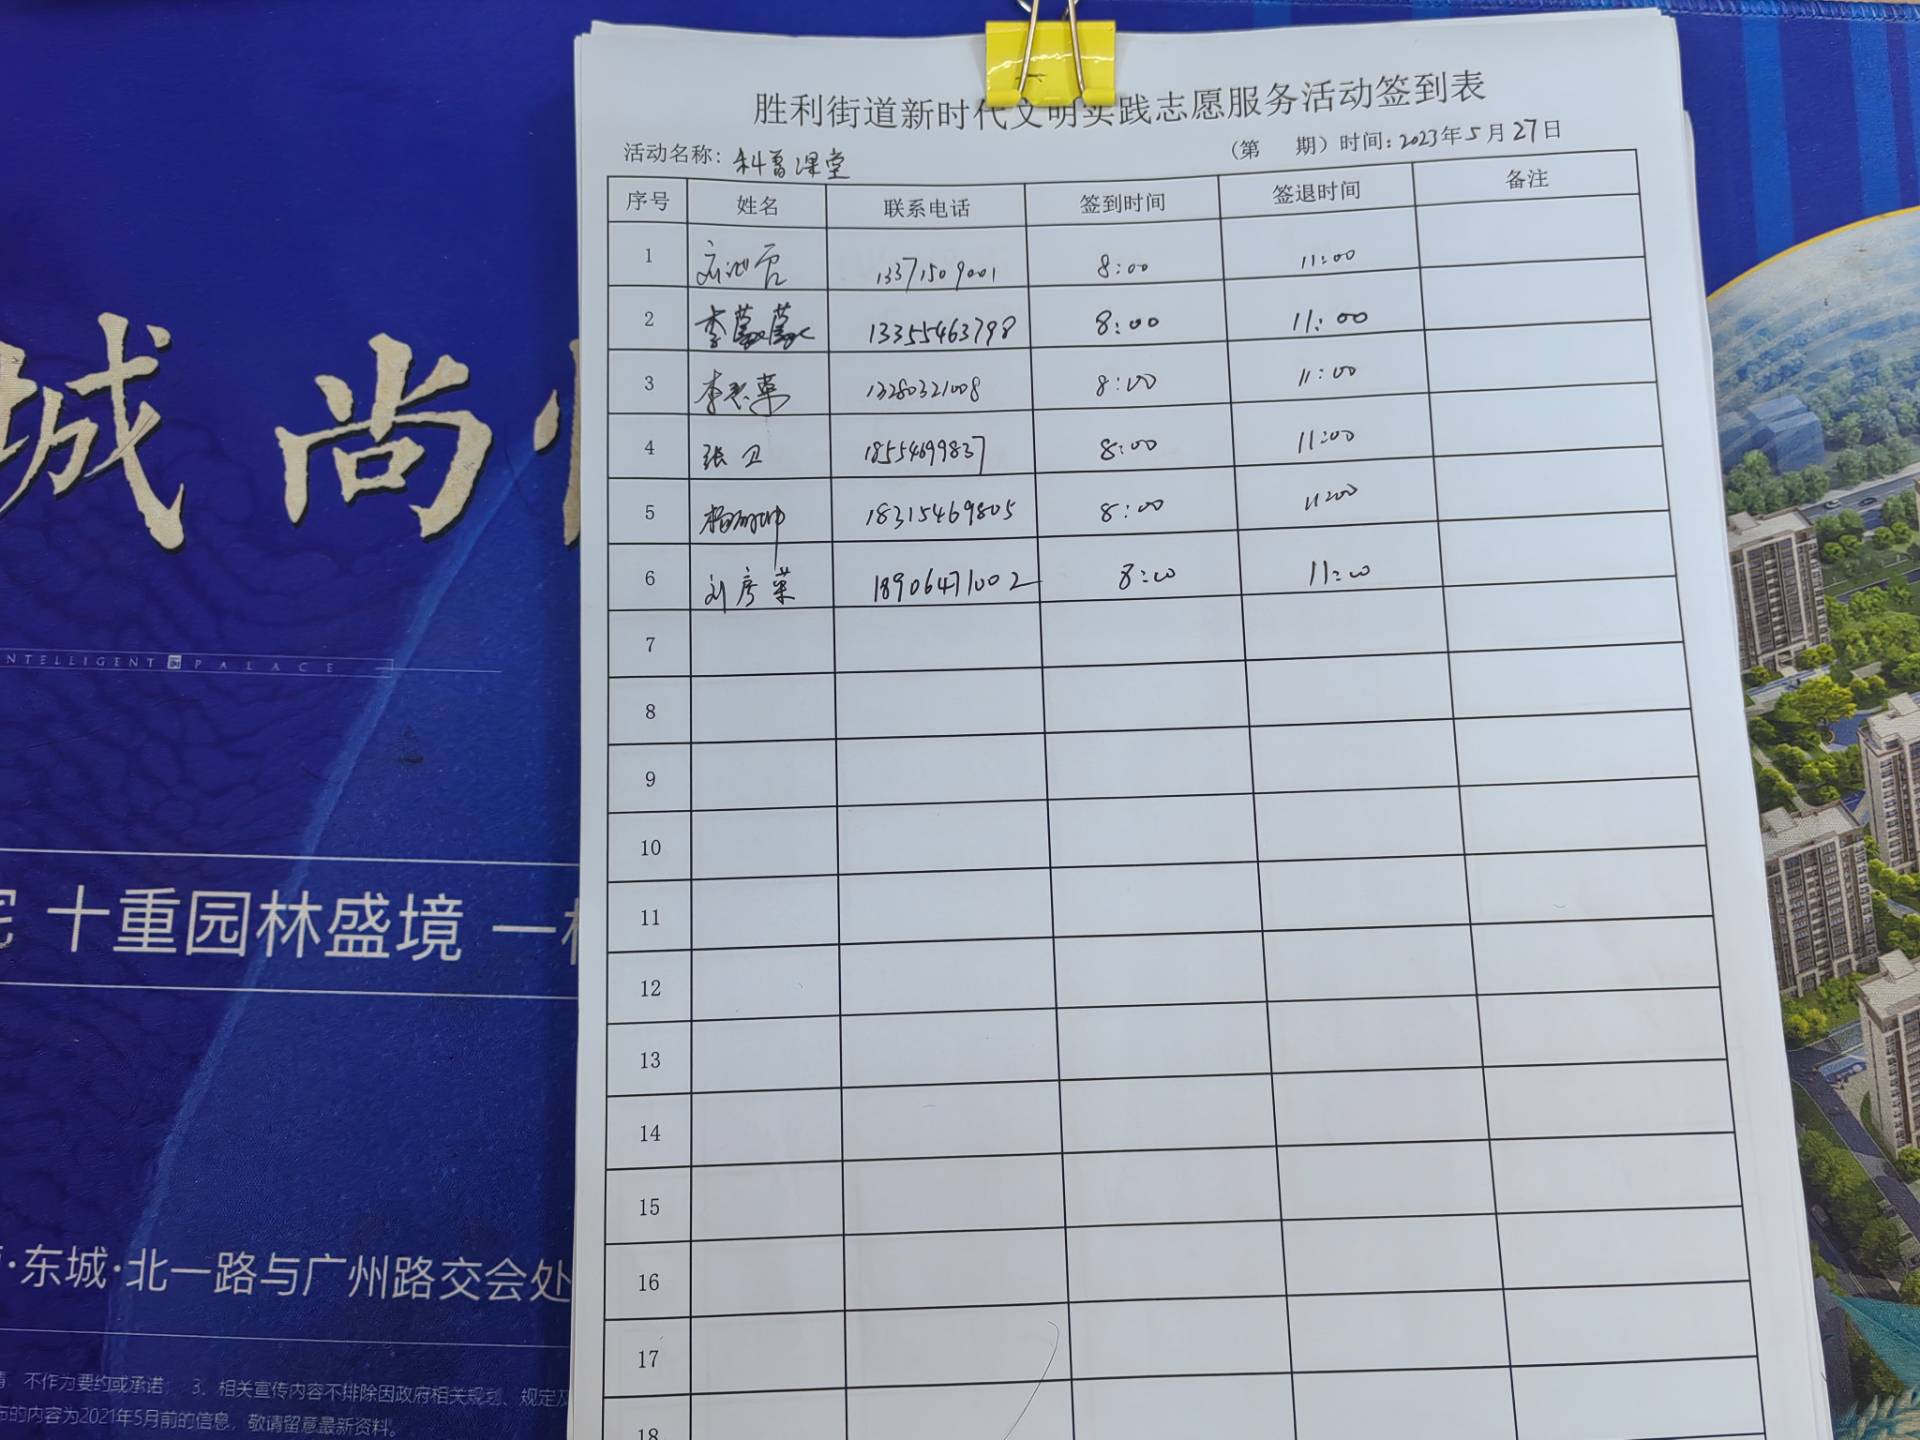 胜利街道新时代文明实践志愿服务活动签到表
活动名称：科普课堂 （第 期）时间：2023年5月27日
序号 姓名 联系电话 签到时间 签退时间 备注
1 13371509001 8:00 11:00
2 李蒙蒙 13355463798 8:00 11:00
3 李志荣 13280321008 8:00 11:00
4 张卫 18554699837 8:00 11:00
5 18315469805 8:00 11:00
6 刘彦荣 18906471002 8:00 11:00
7
8
9
10
11
12
13
14
15
16
17
18
城 尚
INTELLIGENT PALACE
十重园林盛境 一
·东城·北一路与广州路交会处
不作为要约或承诺； 3、相关宣传内容不排除因政府相关规划、规定及
布的内容为2021年5月前的信息，敬请留意最新资料。